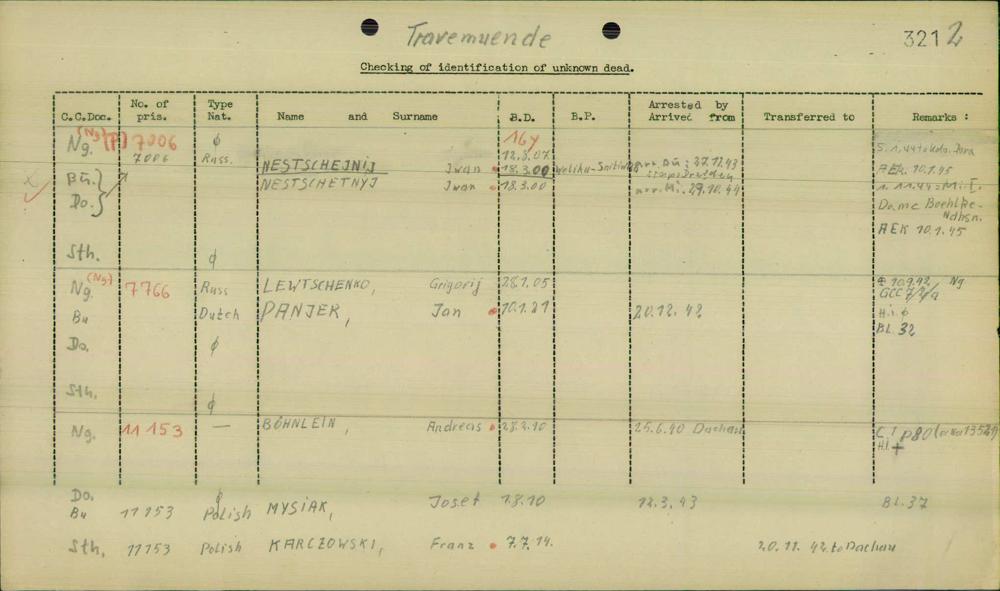 Travemuende 3212
Checking of identification of unknown dead.
C.C.Doc. No. of pris. Type Nat. Name and Surname B.D. B.P. Arrested by Arrived from Transferred to Remarks :
Ng. (Ng) (P) 7006 ϕ 16y
7006 Russ. 12.3.07
NESTSCHEJNIJ Iwan 18.3.00 arr. Bu: 27.12.43 AEK. 10.1.45
Bu. NESTSCHETNYJ Iwan 18.3.00 arr. Mi. 29.10.44 1.11.44 = Mi-E.
Do. Dame Boehlke-
Ndhsn.
AEK 10.1.45
Sth. ϕ
Ng. (Ng) 7766 Russ LEWTSCHENKO, Grigorij 28.1.05 10.9.42 Ng
GCC
Bu Dutch PANJER, Jan 10.1.21 20.12.42 H.i.ϕ
BL. 32
Do. ϕ
Sth. ϕ
Ng. 11153 — BÖHNLEIN, Andreas 28.2.10 25.6.40 Dachau C.I p80
H.I. +
Do. ϕ
Bu 11153 Polish MYSIAK, Josef 1.8.10 12.3.43 BL.37
Sth. 11153 Polish KARCZOWSKI, Franz 7.7.14. 20.11.42 to Dachau